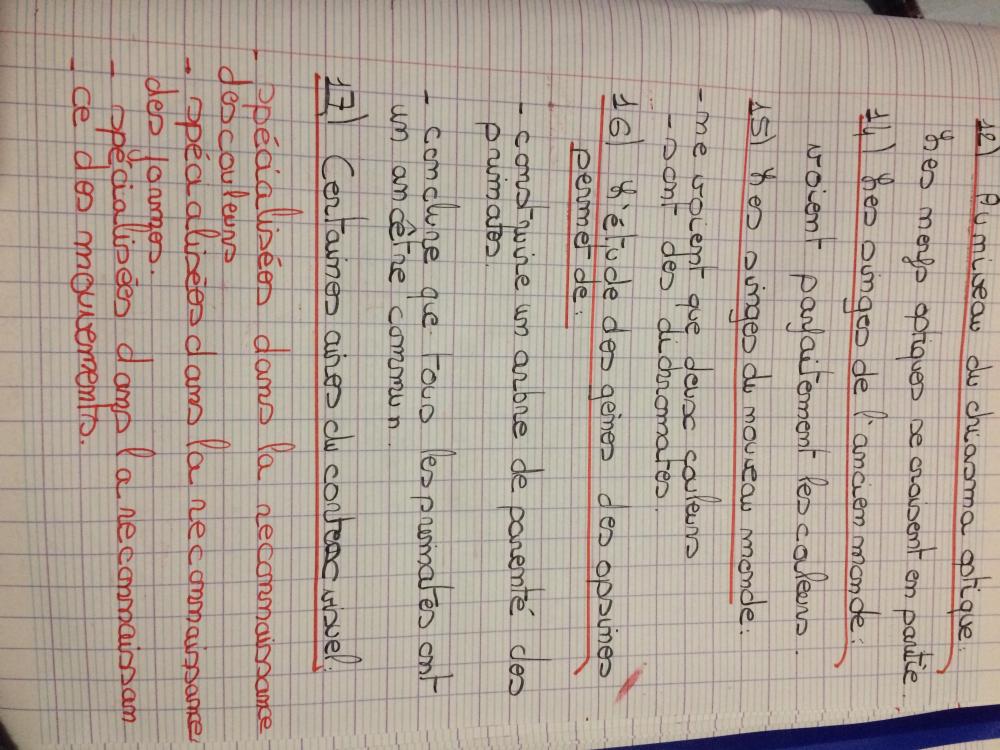 12) Au niveau du chiasma optique.
Les nerfs optiques se croisent en partie.
14) Les singes de l'ancien monde:
voient parfaitement les couleurs.
15) Les singes du nouveau monde:
- ne voient que deux couleurs
- sont des dichromates.
16) L'étude des gènes des opsines
permet de:
- construire un arbre de parenté des
primates.
- conclure que tous les primates ont
un ancêtre commun.
17) Certaines aires du corteac visuel:
- spécialisées dans la reconnaissance
des couleurs
- spécialisées dans la reconnaissance
des formes.
- spécialisées dans la reconnaissan
- ce des mouvements.